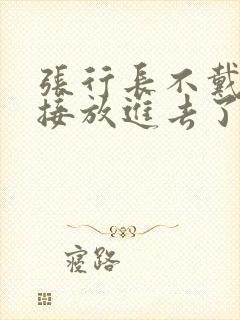 張行長不戴
接放進去了
寢路